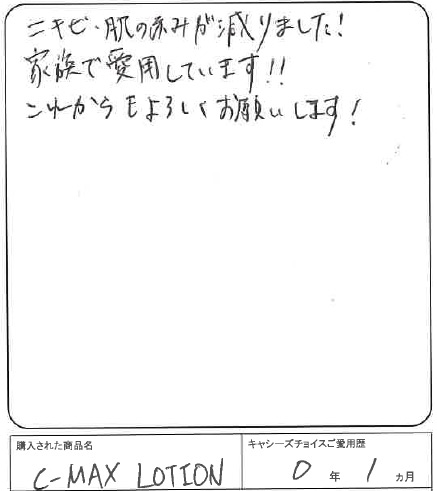 ニキビ・肌の赤みが減りました!
家族で愛用しています!!
これからもよろしくお願いします!
購入された商品名
C-MAX LOTION
キャシーズチョイスご愛用歴
0年 1ヵ月